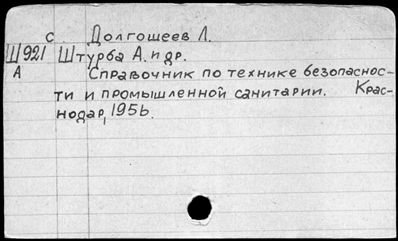 с Долгошеев Л.
Ш921 Штурба А. и др.
А Справочник по технике безопаснос-
ти и промышленной санитарии. Крас-
нодар, 1956.